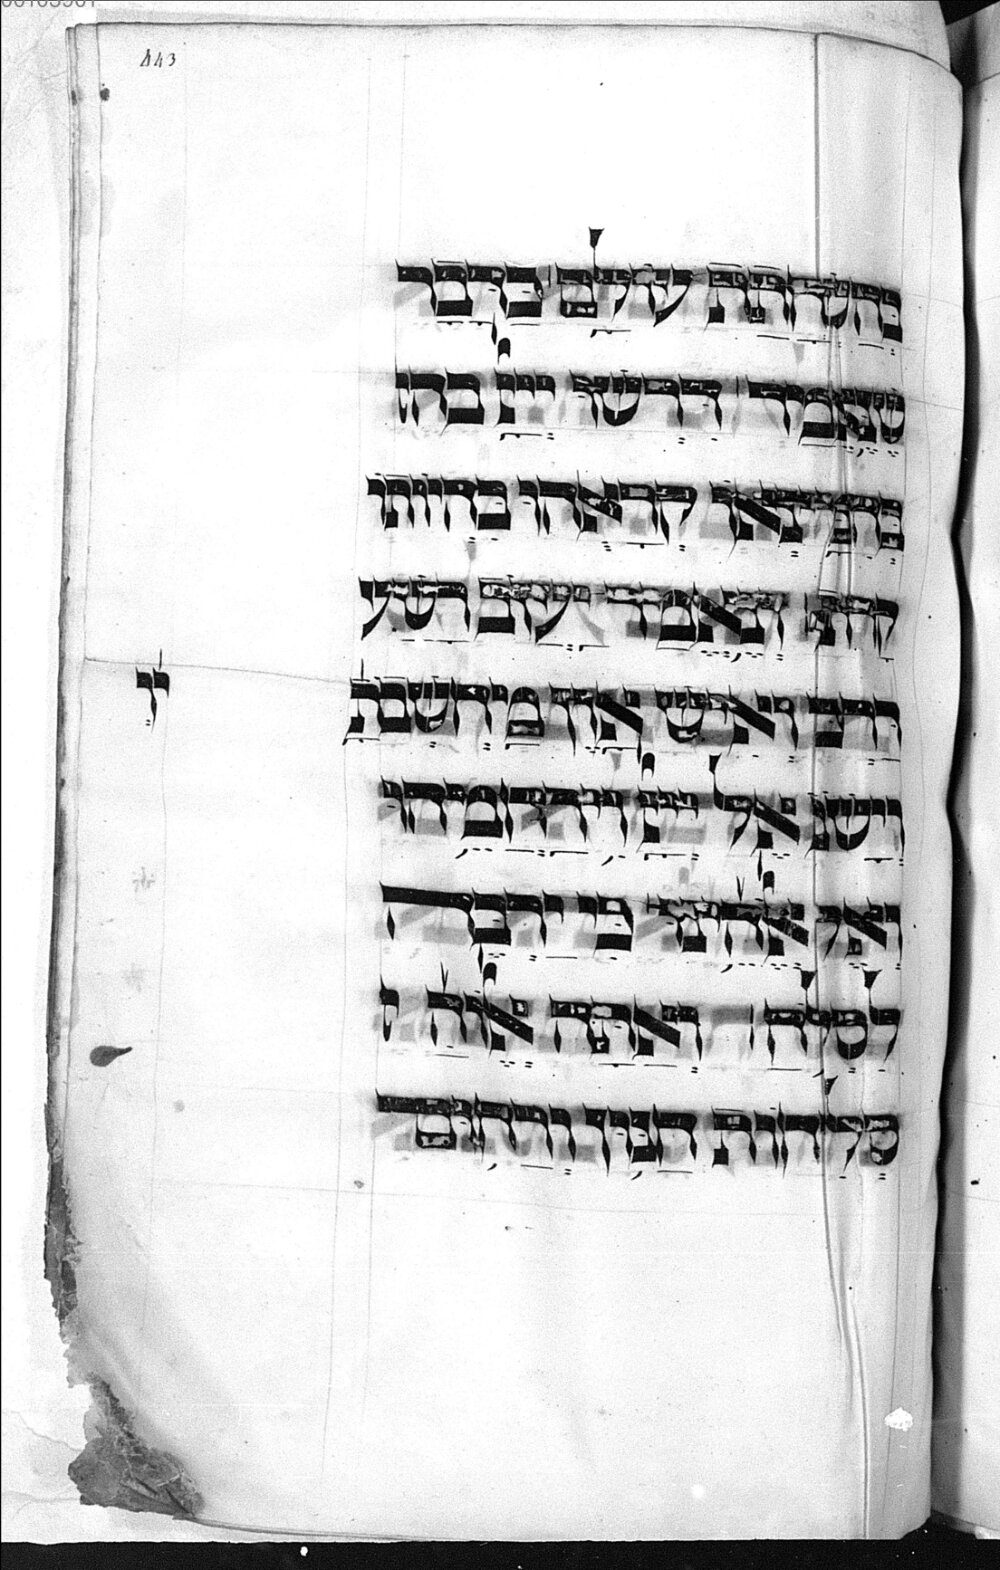 443
בהשחתת עולם כדבר
שאמור דרשו ייי בהי
בהמצאו קראהו בהיותו
קרוב ונאמר יעזוב רשע
דרכו ואיש און מחשבת
ייו
וישב אל ייי וירחמהו
ואל אלהינו כי ירבה
לסלוח ואתה אלוה
סליחות חנון ורחום